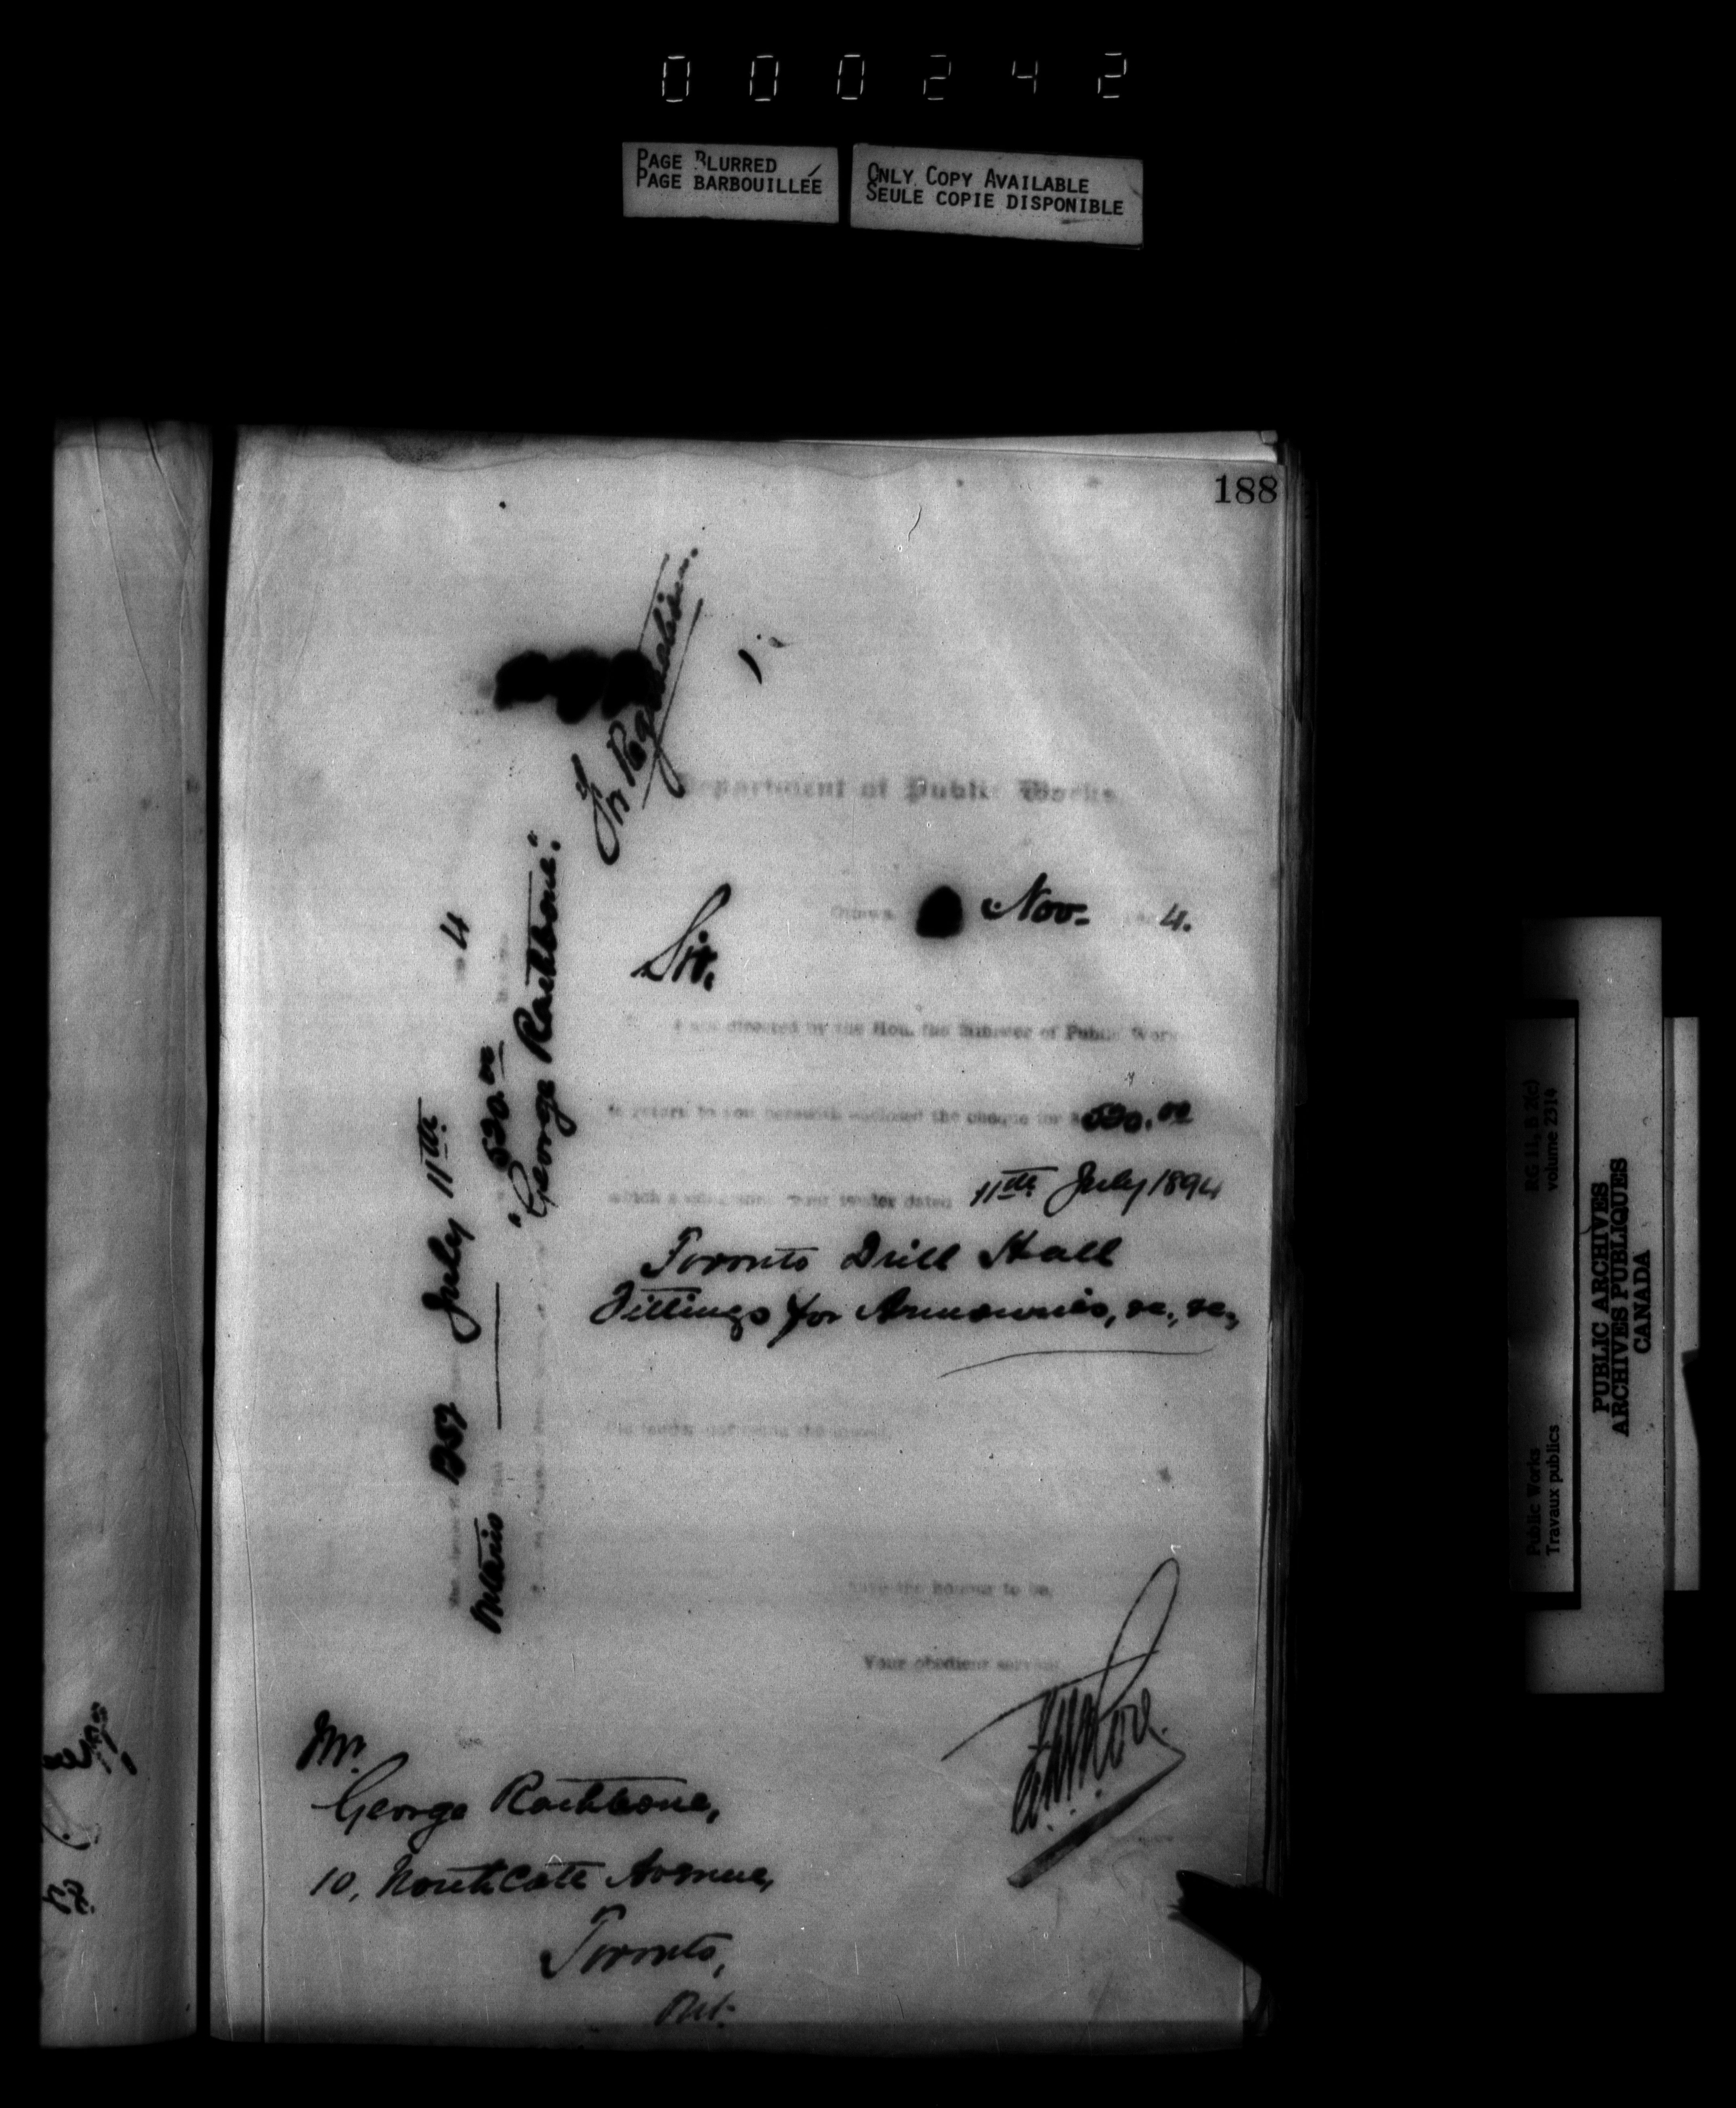 000242
PAGE BLURRED
PAGE BARBOUILLÉE
ONLY COPY AVAILABLE
SEULE COPIE DISPONIBLE
188
Department of Public Works
Ottawa, Nov. 4.
Sir,
I am directed by the Hon. the Minister of Public Works
to return to you herewith enclosed the cheque for $ 520.00
which your tender dated 11th July 1894
Toronto Drill Hall
Fittings for Armouries, &c., &c.,
the honour to be,
Your obedient servant
Mr.
George Rathbone,
10, Northcote Avenue,
Toronto,
Ont.
July 11th 4
520.00
"George Rathbone".
PUBLIC ARCHIVES
ARCHIVES PUBLIQUES
CANADA
RG 11, B 2(c)
volume 2314
Public Works
Travaux publics